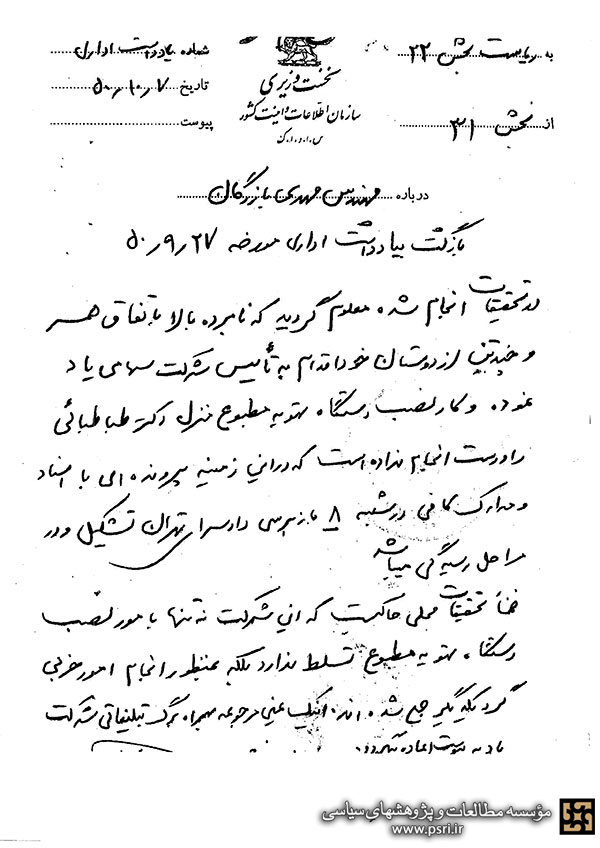 به ریاست بخش ۲۲
شماره یادداشت اداری
نخست وزیری
تاریخ ۵۰٫۱۰٫۷
سازمان اطلاعات و امنیت کشور
س.ا.و.ا.ک
از بخش ۳۱
پیوست
درباره مهندس مهدی بازرگان
بازگشت بیادداشت اداری مورخه ۵۰٫۹٫۲۷
در تحقیقات انجام شده معلوم گردید که نامبرده بالا باتفاق همسر
و چندتن از دوستان خود اقدام به تأسیس شرکت سهامی یاد
نموده و کار نصب دستگاه تهویه مطبوع منزل دکتر طباطبائی
را درست انجام نداده است که در این زمینه پرونده ای با اسناد
و مدارک کافی در شعبه ۸ بازپرسی دادسرای تهران تشکیل و در
مراحل رسیدگی میباشد
ضمناً تحقیقات محلی حاکیست که این شرکت نه تنها بامور نصب
دستگاه تهویه مطبوع تسلط ندارد بلکه بمنظور انجام امور حزبی
گرد یکدیگر جمع شده اند. اینک عین مرجوعه بهمراه برگ تبلیغاتی شرکت
یاد به پیوست اعاده میگردد.
مؤسسه مطالعات و پژوهشهای سیاسی
www.psri.ir